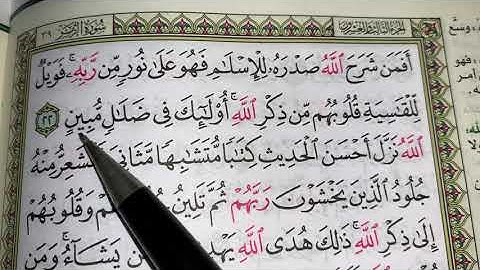 سُورَةُ الزُّمَرِ ٣٩
الجزء الثالث والعشرون
أَفَمَن شَرَحَ اللَّهُ صَدْرَهُ لِلْإِسْلَامِ فَهُوَ عَلَىٰ نُورٍ مِّن رَّبِّهِ ۚ فَوَيْلٌ
لِّلْقَاسِيَةِ قُلُوبُهُم مِّن ذِكْرِ اللَّهِ ۚ أُولَٰئِكَ فِي ضَلَالٍ مُّبِينٍ ٢٢
اللَّهُ نَزَّلَ أَحْسَنَ الْحَدِيثِ كِتَابًا مُّتَشَابِهًا مَّثَانِيَ تَقْشَعِرُّ مِنْهُ
جُلُودُ الَّذِينَ يَخْشَوْنَ رَبَّهُمْ ثُمَّ تَلِينُ وَقُلُوبُهُمْ
إِلَىٰ ذِكْرِ اللَّهِ ۚ ذَٰلِكَ هُدَى اللَّهِ يَهْدِي يَشَاءُ ۚ وَمَن